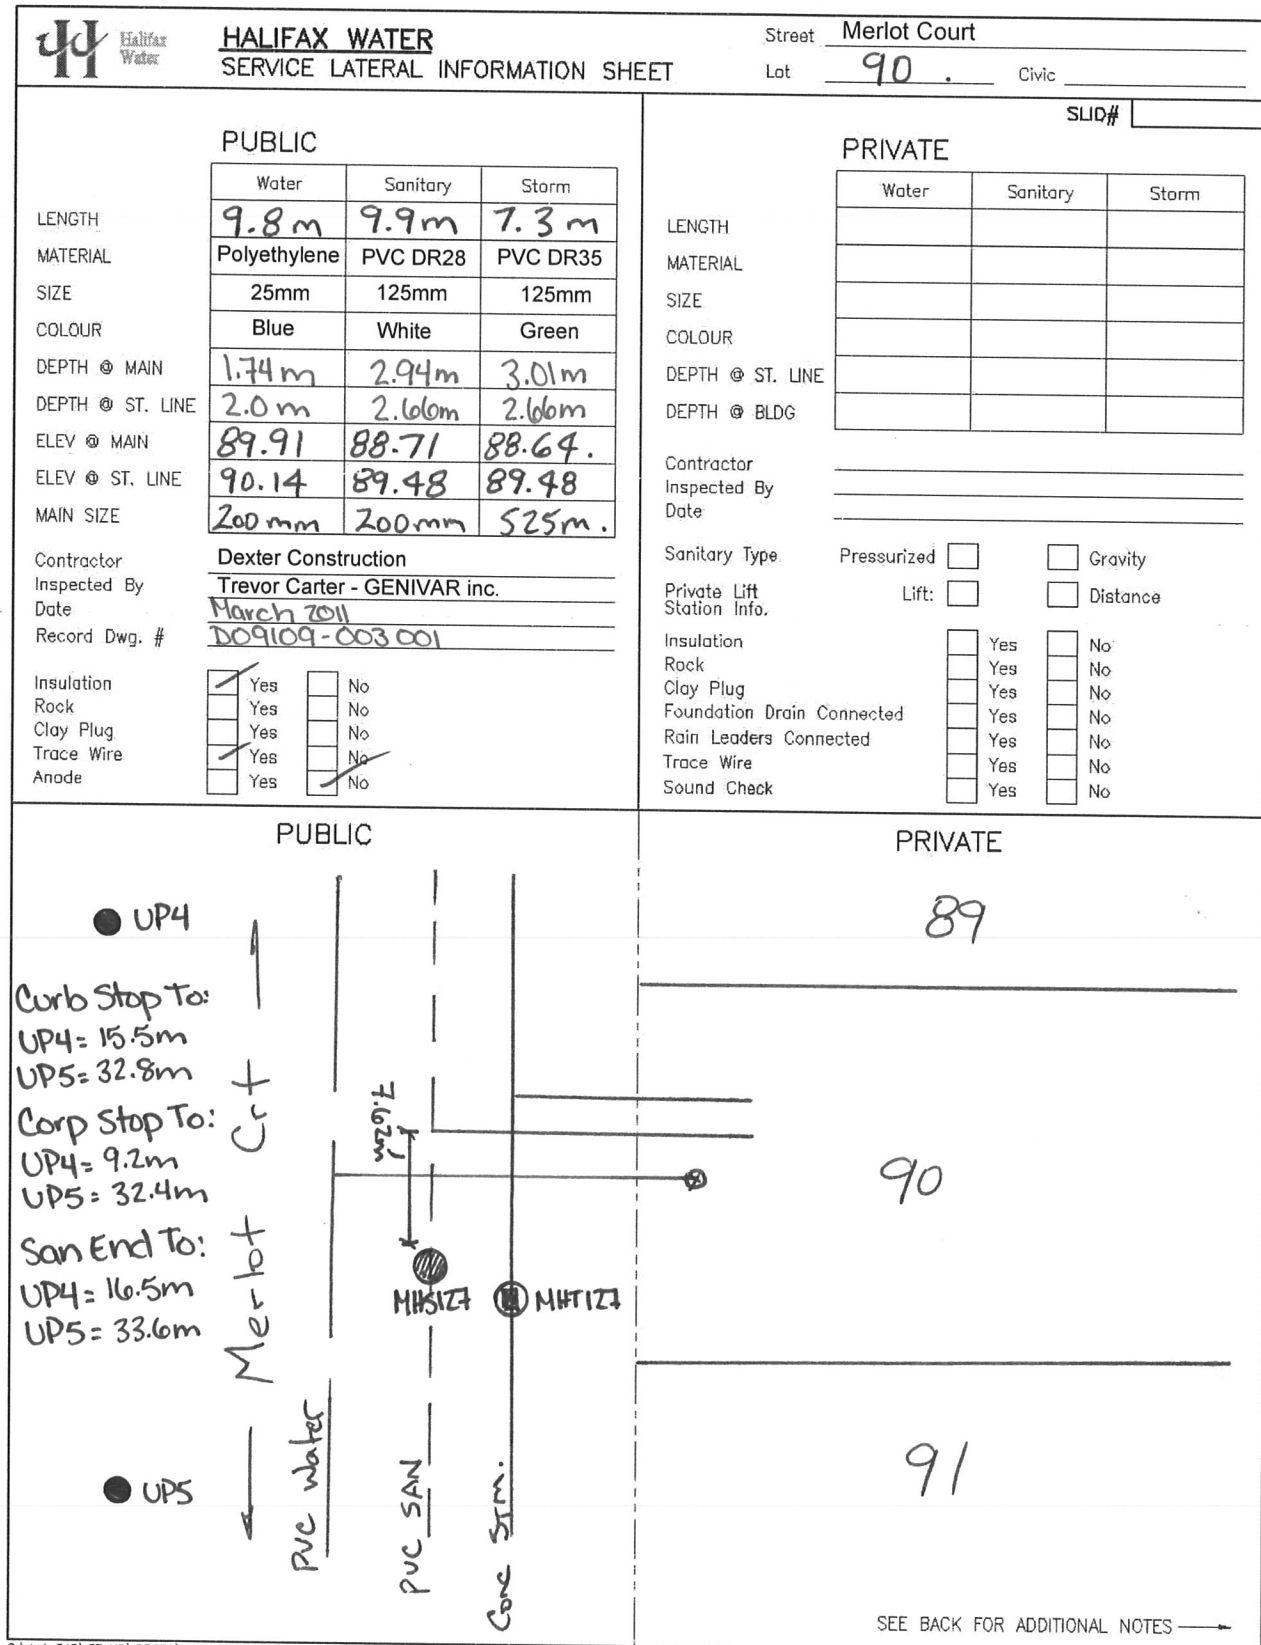 Halifax Water
HALIFAX WATER
SERVICE LATERAL INFORMATION SHEET
Street Merlot Court
Lot 90 . Civic
SLID#
PUBLIC
Water Sanitary Storm
LENGTH 9.8m 9.9m 7.3m
MATERIAL Polyethylene PVC DR28 PVC DR35
SIZE 25mm 125mm 125mm
COLOUR Blue White Green
DEPTH @ MAIN 1.74m 2.94m 3.01m
DEPTH @ ST. LINE 2.0m 2.66m 2.66m
ELEV @ MAIN 89.91 88.71 88.64.
ELEV @ ST. LINE 90.14 89.48 89.48
MAIN SIZE 200mm 200mm 525m.
Contractor Dexter Construction
Inspected By Trevor Carter - GENIVAR inc.
Date March 2011
Record Dwg. # D09109-003001
Insulation Yes No
Rock Yes No
Clay Plug Yes No
Trace Wire Yes No
Anode Yes No
PRIVATE
Water Sanitary Storm
LENGTH
MATERIAL
SIZE
COLOUR
DEPTH @ ST. LINE
DEPTH @ BLDG
Contractor
Inspected By
Date
Sanitary Type Pressurized Gravity
Private Lift Station Info. Lift: Distance
Insulation Yes No
Rock Yes No
Clay Plug Yes No
Foundation Drain Connected Yes No
Rain Leaders Connected Yes No
Trace Wire Yes No
Sound Check Yes No
PUBLIC
UP4
Curb Stop To:
UP4= 15.5m
UP5= 32.8m
Corp Stop To:
UP4= 9.2m
UP5= 32.4m
San End To:
UP4= 16.5m
UP5= 33.6m
UP5
Merlot Crt
7.62m
MHS127
MHT127
PVC Water
PVC SAN
Conc STM.
PRIVATE
89
90
91
SEE BACK FOR ADDITIONAL NOTES